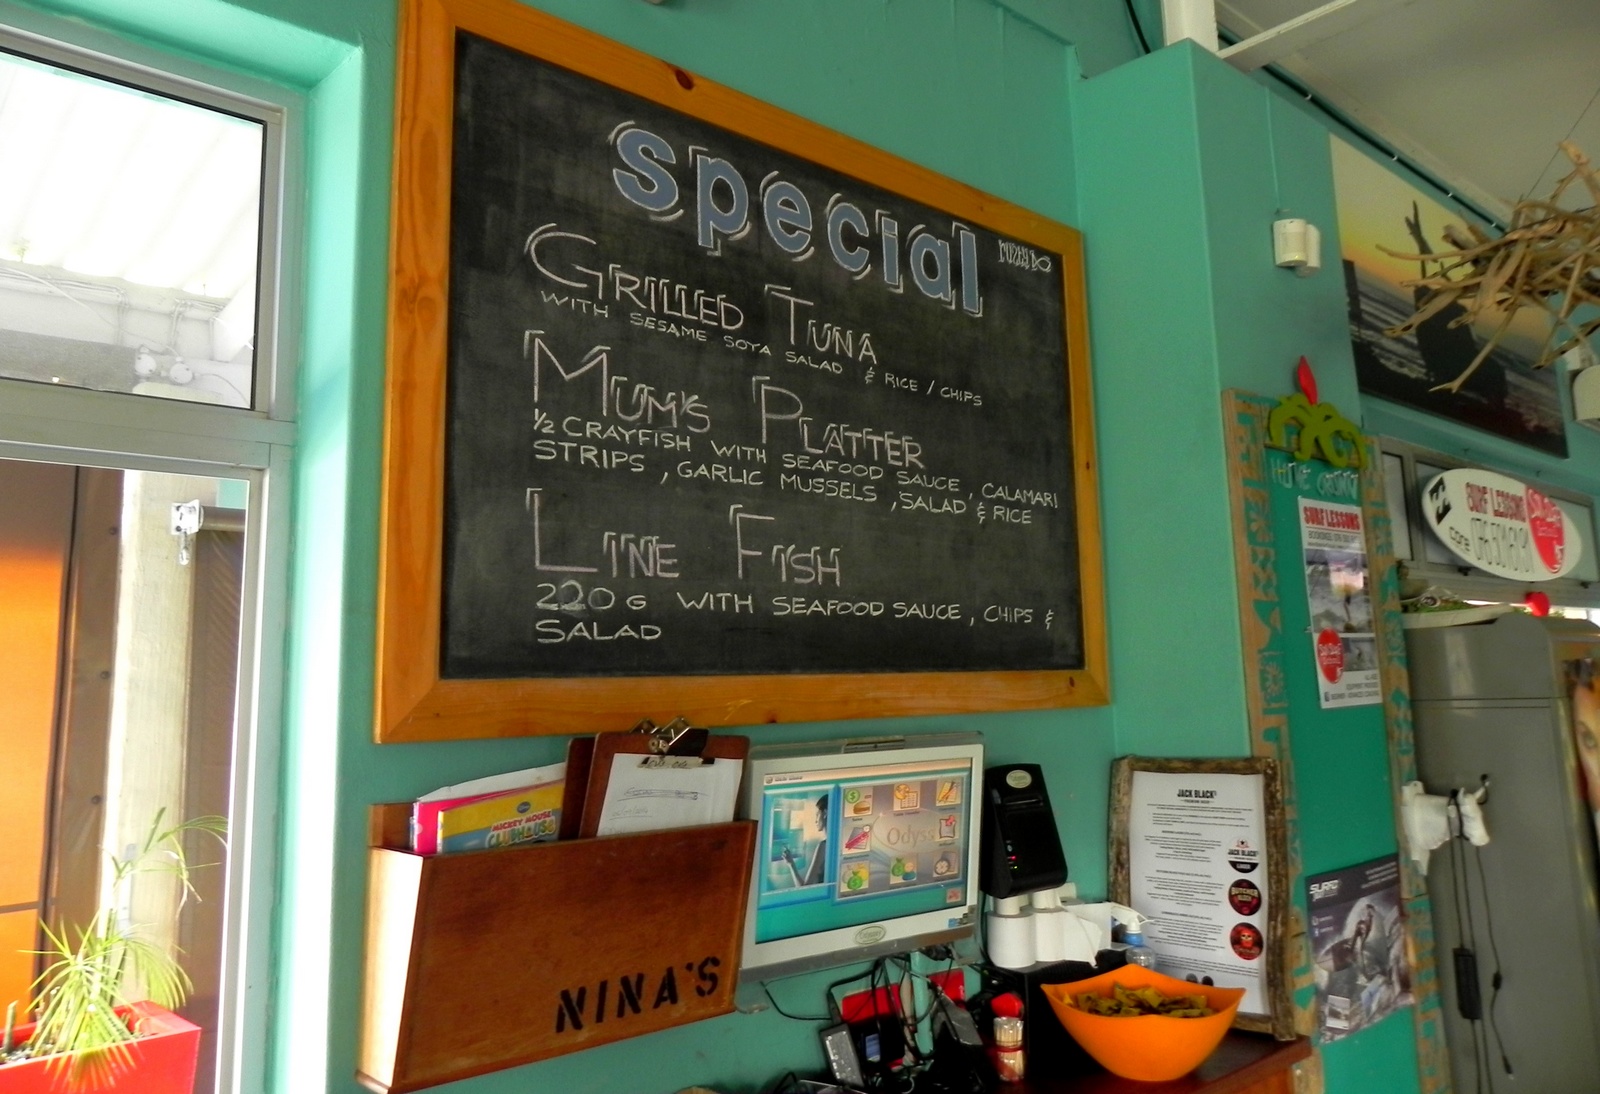 special
GRILLED TUNA
WITH SESAME SOYA SALAD & RICE / CHIPS
MUM'S PLATTER
1/2 CRAYFISH WITH SEAFOOD SAUCE, CALAMARI
STRIPS, GARLIC MUSSELS, SALAD & RICE
LINE FISH
220 G WITH SEAFOOD SAUCE, CHIPS &
SALAD
MICKEY MOUSE
CLUBHOUSE
NINA'S
Odyss
JACK BLACK'S
JACK BLACK'S
BUTCHER
SURF LESSONS
SURF LESSONS
core